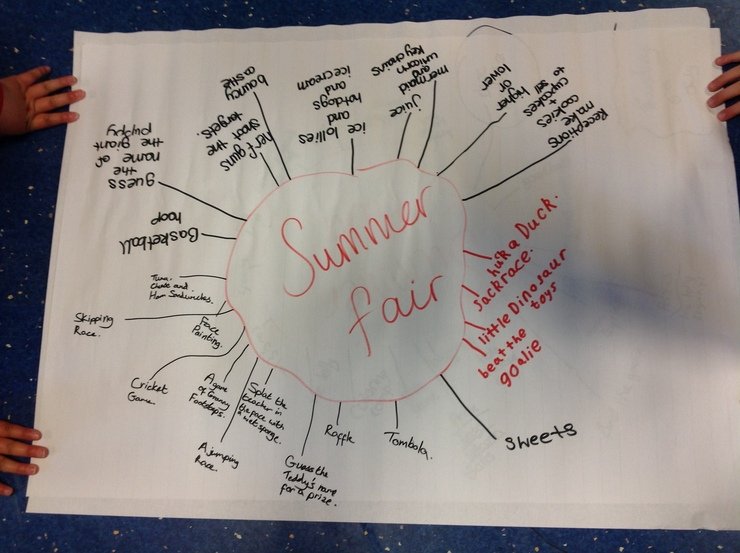 Summer
fair
bouncy
castle
nerf guns
shoot the
targets.
ice lollies
and
hotdogs
and
ice cream
Juice
mermaid
and
unicorn
Keychains
higher
or
lower
Receptions
make
cookies
cupcakes +
to sell
huk a Duck.
Sack race.
little Dinosaur
toys
beat the
goalie
sweets
Tombola.
Raffle
Guess the
Teddy's name
for a prize.
Splat the
teacher in
the face with
a wet sponge.
A jumping
Race.
A game
of Granny
Footsteps.
Cricket
Game.
Face
Painting.
Skipping
Race.
Tuna,
Cheese and
Ham Sandwiches.
Basketball
hoop
guess
the
name of
the giant